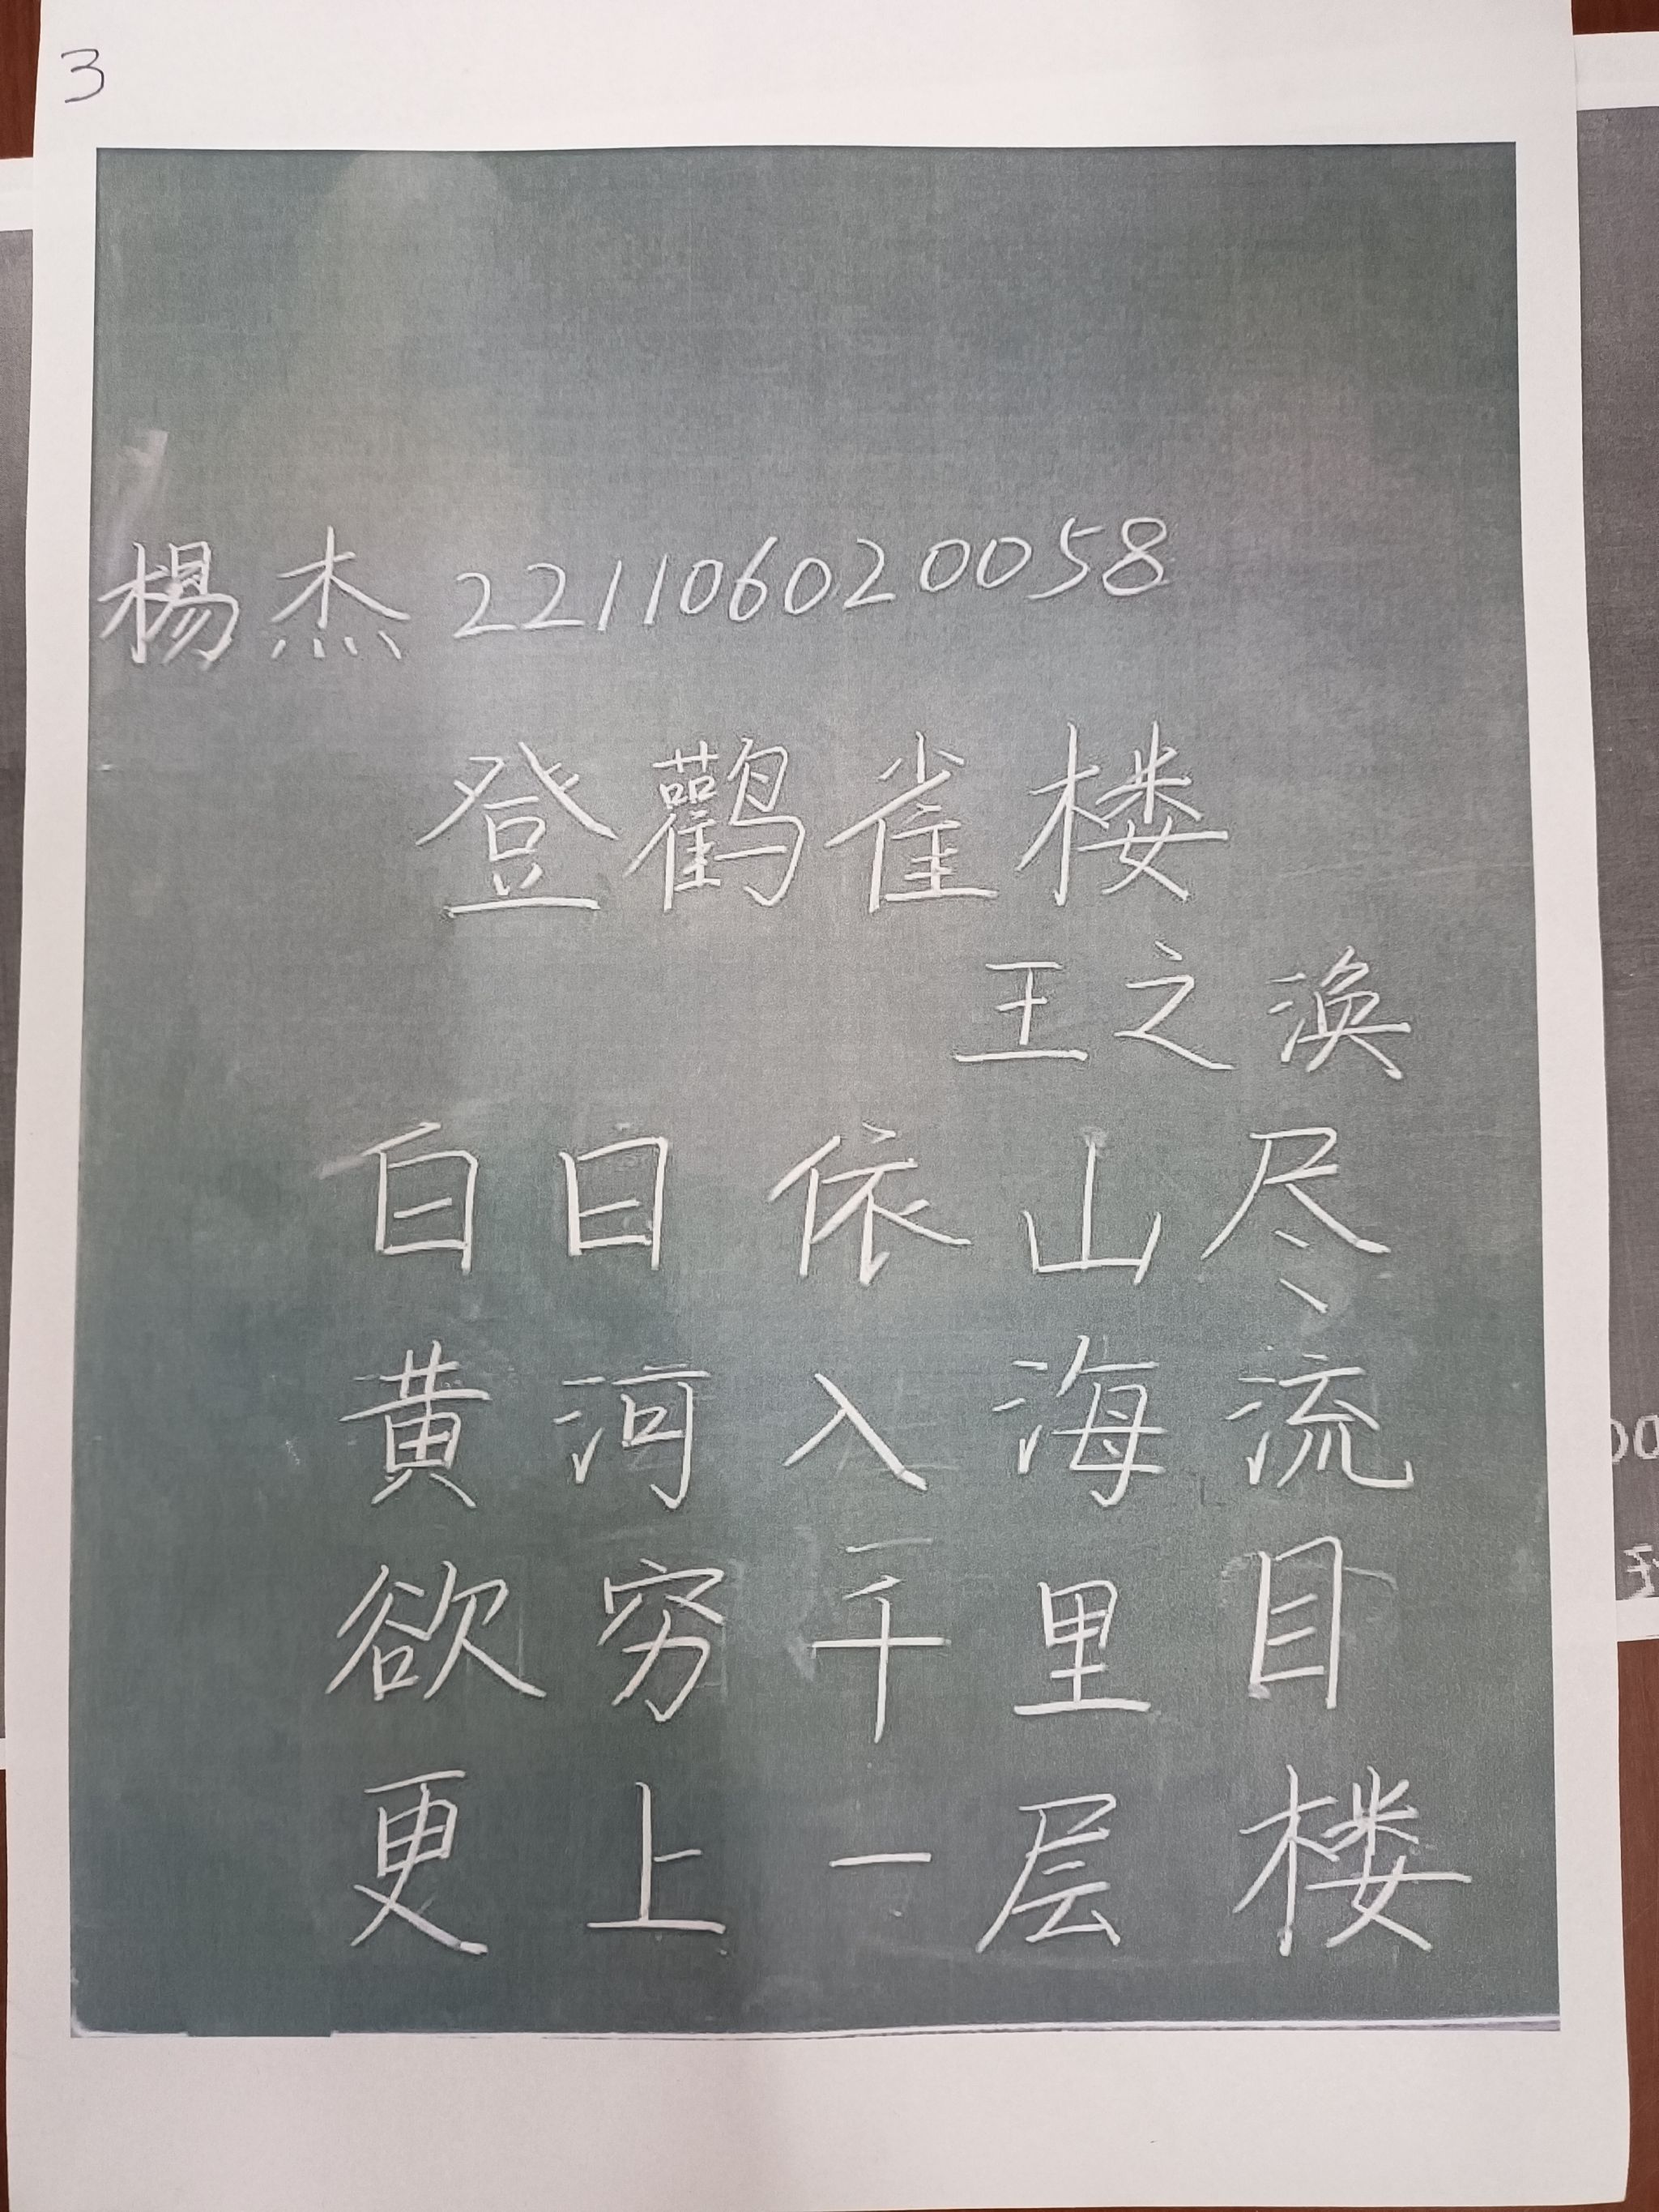 3
楊杰 221106020058
登鸛雀楼
王之涣
白日依山尽
黄河入海流
欲穷千里目
更上一层楼
00